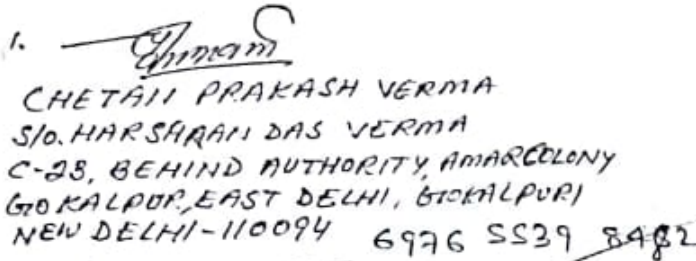 1.
CHETAN PRAKASH VERMA
S/O. HARSARAN DAS VERMA
C-23, BEHIND AUTHORITY, AMARCOLONY
GOKALPUR, EAST DELHI, GOKALPURI
NEW DELHI-110094 6976 5539 8482